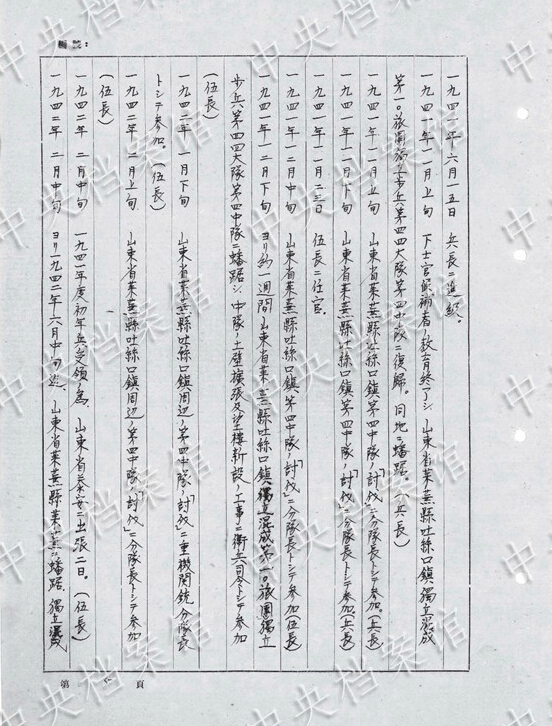 一九四一年 六月一五日 兵長ニ進級。
一九四一年一一月上旬 下士官候補者ノ教育終了シ 山東省萊蕪縣吐絲口鎮 獨立混成
第一〇旅團獨立歩兵第四四大隊第四中隊ニ復歸。同地ニ蟠踞。(兵長)
一九四一年一一月上旬 山東省萊蕪縣吐絲口鎮第四中隊ノ「討伐」ニ分隊長トシテ参加。(兵長)
一九四一年一一月下旬 山東省萊蕪縣吐絲口鎮第四中隊ノ「討伐」ニ分隊長トシテ参加。(兵長)
一九四一年一一月二三日 伍長ニ任官。
一九四一年一二月中旬 山東省萊蕪縣吐絲口鎮第四中隊ノ「討伐」ニ分隊長トシテ参加(伍長)
一九四一年一二月下旬 ヨリ約一週間 山東省萊蕪縣吐絲口鎮獨立混成第一〇旅團獨立
歩兵第四四大隊第四中隊ニ蟠踞シ、中隊ノ土壁擴張及望樓新設ノ工事ニ衛兵司令トシテ参加
(伍長)
一九四二年 一月下旬 山東省萊蕪縣吐絲口鎮周辺ノ第四中隊ノ「討伐」ニ重機関銃分隊長
トシテ参加。(伍長)
一九四二年 二月上旬 山東省萊蕪縣吐絲口鎮周辺ノ第四中隊ノ「討伐」ニ分隊長トシテ参加
(伍長)
一九四二年 二月中旬 一九四一年度初年兵受領ノ為 山東省泰安ニ出張二日。(伍長)
一九四二年 二月中旬 ヨリ一九四二年六月中旬迄、山東省萊蕪縣萊蕪ニ蟠踞、獨立混成
第 頁
中央档案馆